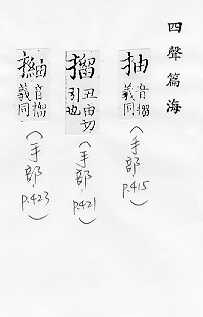 四聲篇海
抽 音搊義同 (手部 p.415)
㨨 丑由切引也 (手部 p.421)
音搊義同 (手部 p.423)